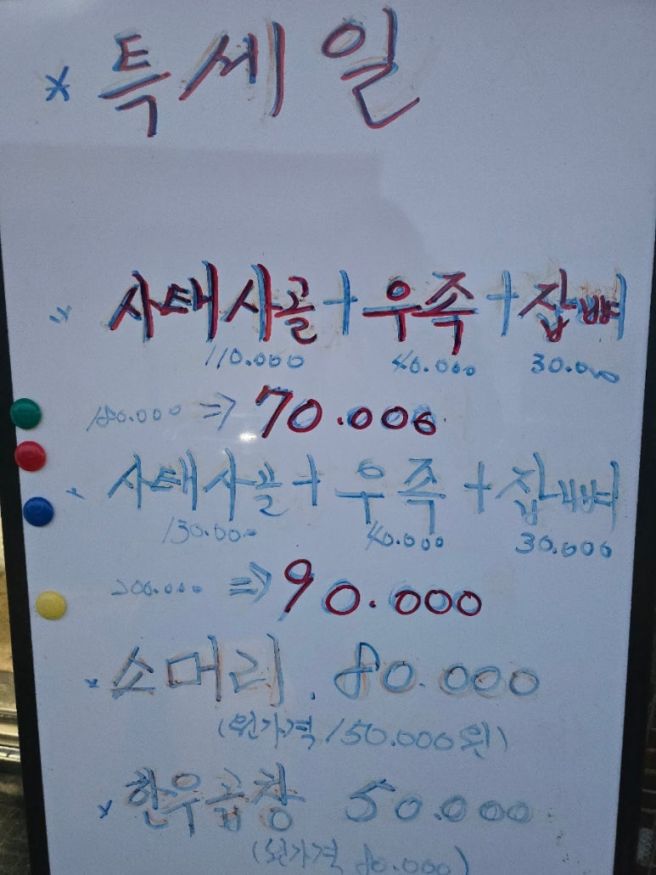 * 특세일
* 사태사골+우족+잡뼈
110.000 40.000 30.000
180.000 => 70.000
* 사태사골+우족+잡뼈
130.000 40.000 30.000
200.000 => 90.000
* 소머리. 80.000
(원가격 150.000원)
* 한우곱창 50.000
(원가격 80.000)